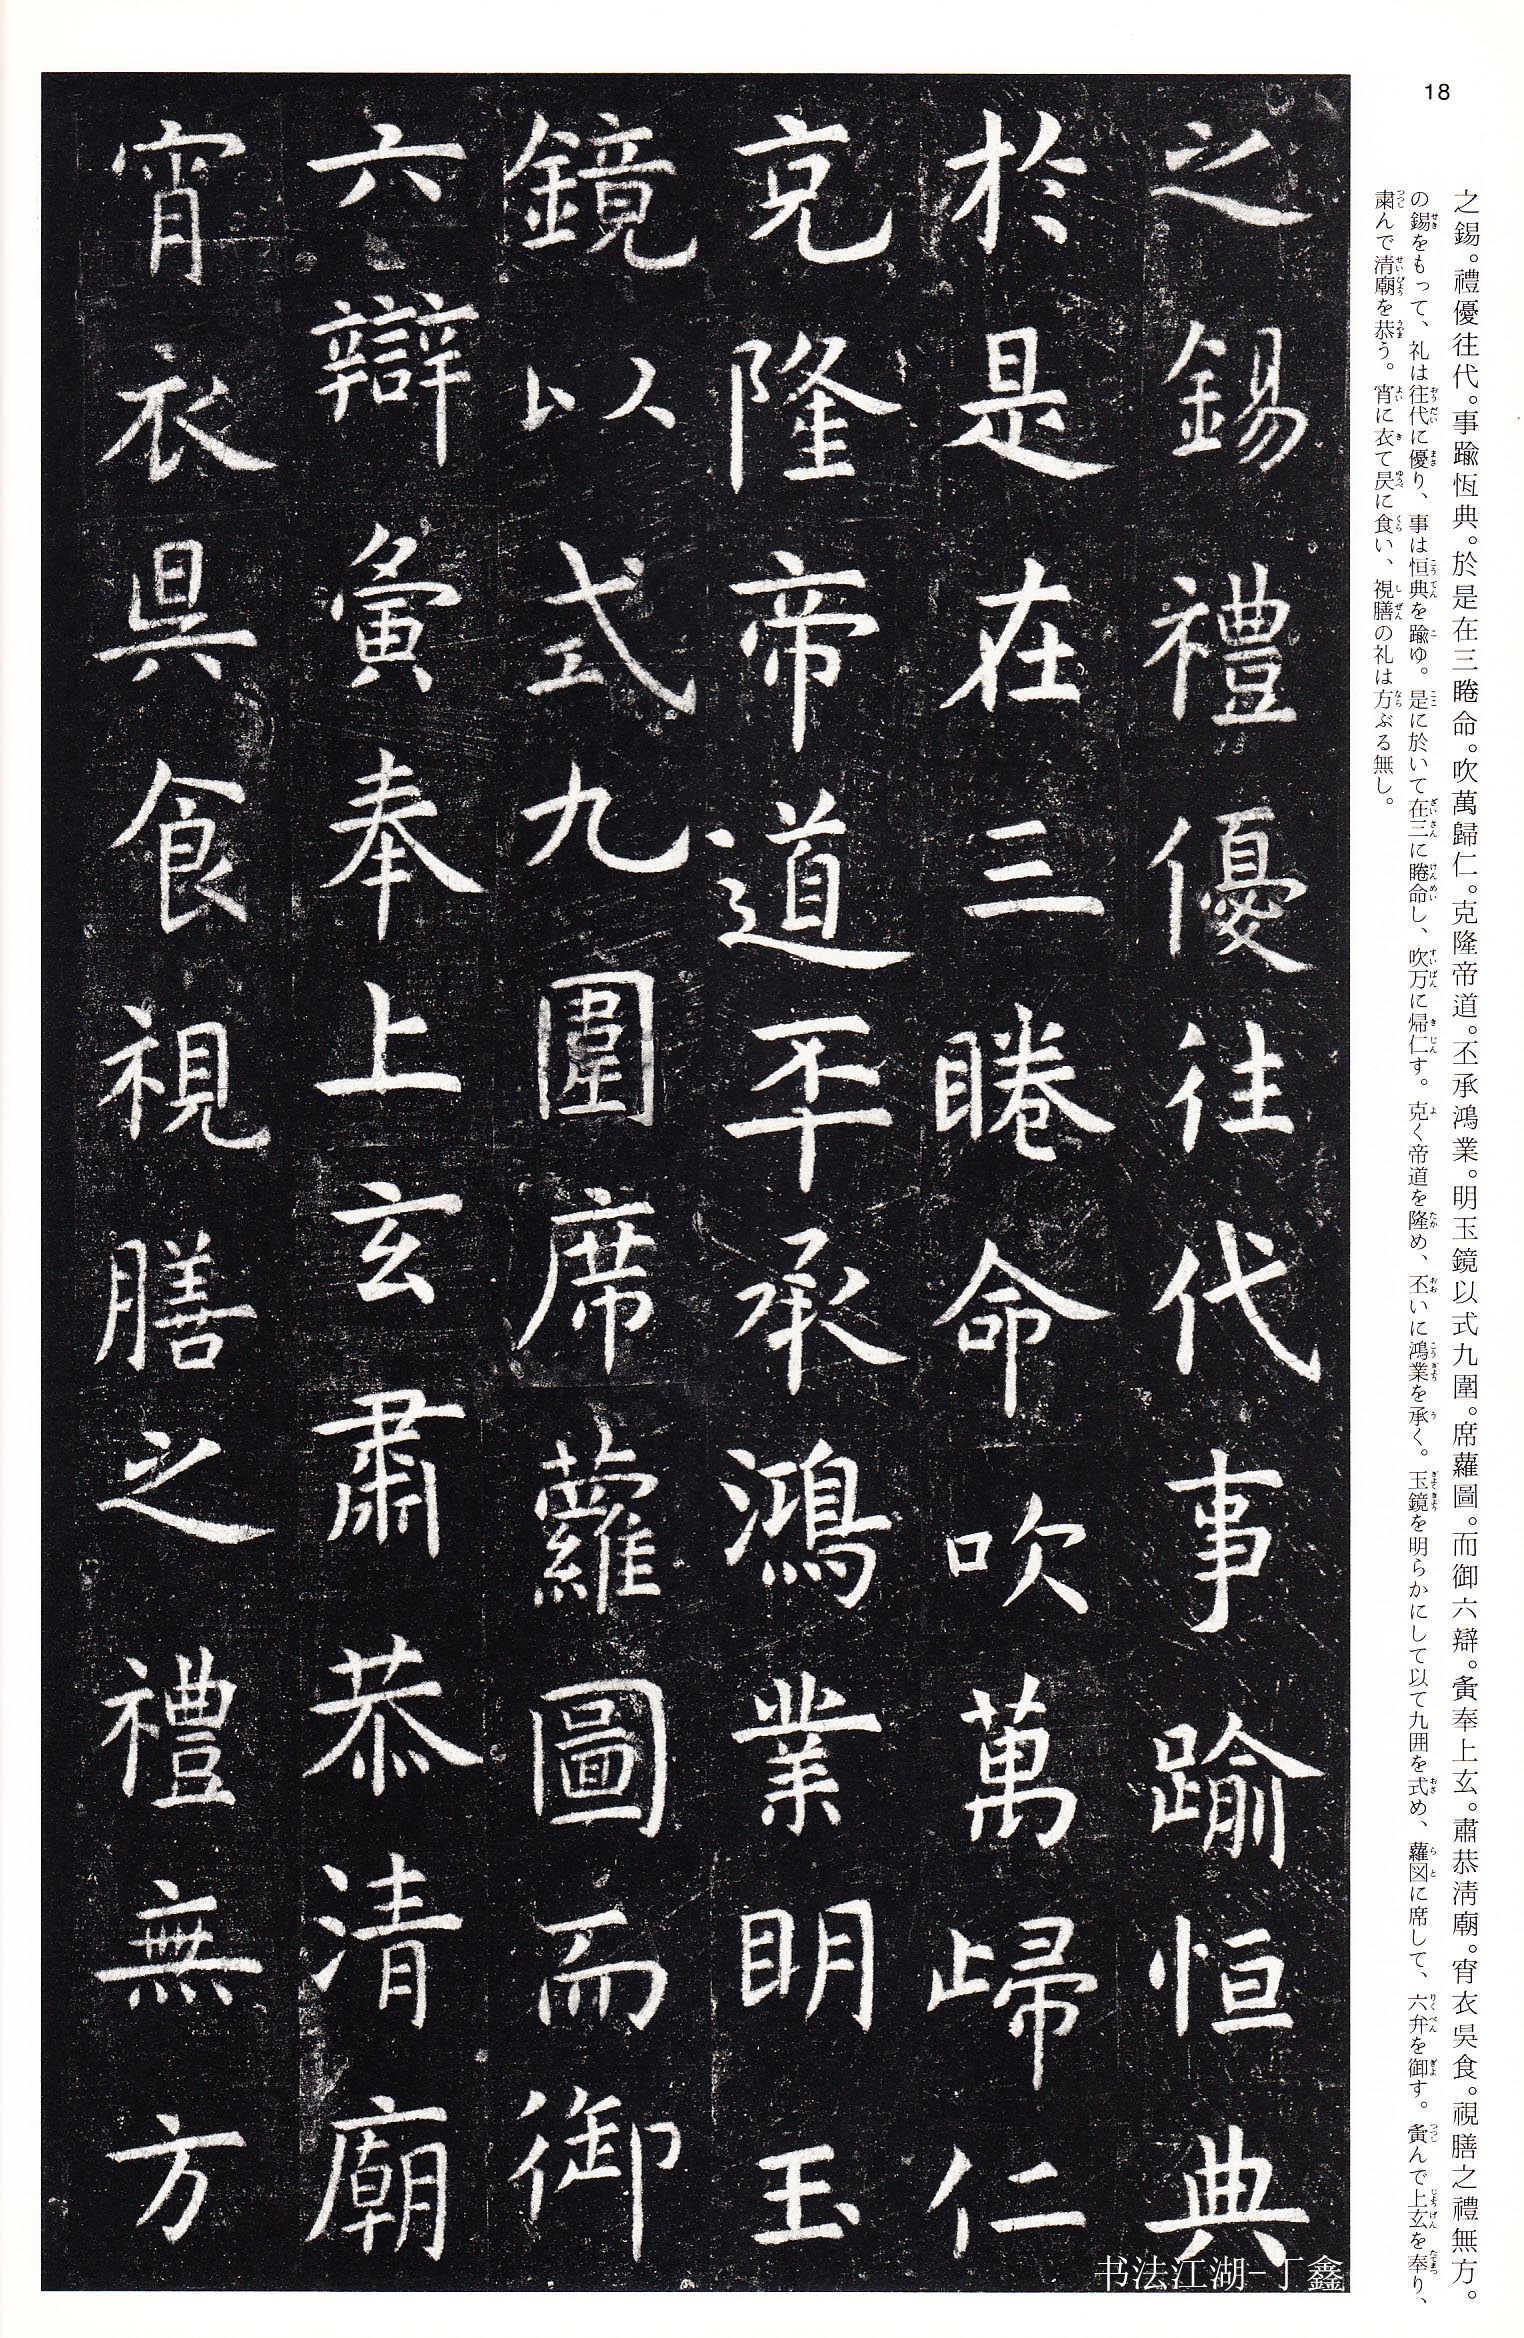 18
之錫。禮優往代。事踰恆典。於是在三睠命。吹萬歸仁。克隆帝道。丕承鴻業。明玉鏡以式九圍。席蘿圖。而御六辯。夤奉上玄。肅恭淸廟。宵衣昃食。視膳之禮無方。
の錫をもって、礼は往代に優り、事は恒典を踰ゆ。是に於いて在三に睠命し、吹万に帰仁す。克く帝道を隆め、丕いに鴻業を承く。玉鏡を明らかにして以て九囲を式め、蘿図に席して、六弁を御す。夤んで上玄を奉り、
粛んで清廟を恭う。宵に衣て昃に食い、視膳の礼は方ぶる無し。
之錫禮優往代事踰恒典
於是在三睠命吹萬歸仁
克隆帝道丕承鴻業明玉
鏡以式九圍席蘿圖而御
六辯夤奉上玄肅恭清廟
宵衣昃食視膳之禮無方
书法江湖-丁鑫